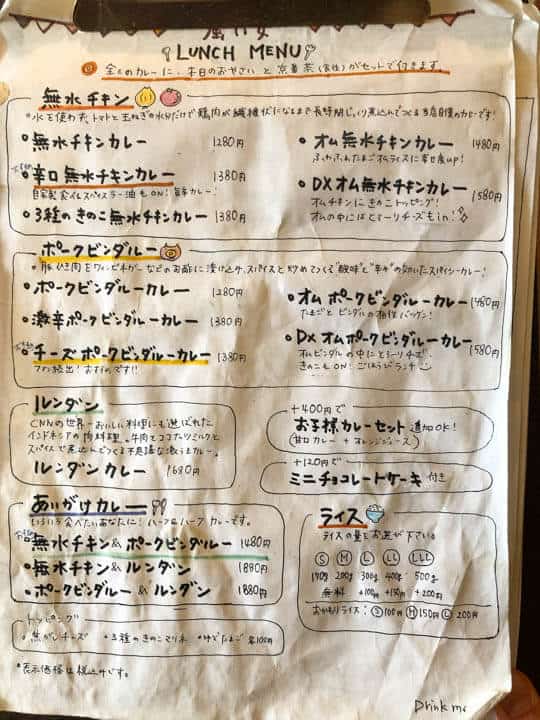 LUNCH MENU
全てのカレーに、本日のおやさい と 京番茶 がセットで付きます。
無水チキン
水を使わず、トマトと玉ねぎの水分だけで鶏肉が繊維状になるまで長時間じっくり煮込んでつくる当店自慢のカレーです!
無水チキンカレー 1280円
辛口無水チキンカレー 1380円
自家製食べるスパイスラー油もON! 旨辛カレー!
3種のきのこ無水チキンカレー 1380円
オム無水チキンカレー 1480円
ふわふわたまごオムライスに幸せ度up!
DXオム無水チキンカレー 1580円
オムチキンにきのこトッピング!
オムの中にはとろーりチーズもin!
ポークビンダルー
豚ひき肉をワインビネガーなどのお酢に漬け込み、スパイスと炒めてつくる"酸味"と"辛み"の効いたスパイシーカレー!
ポークビンダルーカレー 1280円
激辛ポークビンダルーカレー 1380円
チーズポークビンダルーカレー 1380円
ファン続出! おすすめです!!
オムポークビンダルーカレー 1480円
たまごとビンダルの相性バツグン!
DXオムポークビンダルーカレー 1580円
オムビンダルの中にとろーりチーズ
きのこもON! ごほうびランチ
ルンダン
CNNの世界一おいしい料理にも選ばれた
インドネシアの肉料理。牛肉とココナッツミルクと
スパイスで煮込んでつくる不思議な激うまカレー。
ルンダンカレー 1680円
+400円で
お子様カレーセット 追加OK!
(甘口カレー + オレンジジュース)
+120円で
ミニチョコレートケーキ 付き
あいがけカレー
いろいろ食べたいあなたに! ハーフ&ハーフ カレーです。
無水チキン&ポークビンダルー 1480円
無水チキン&ルンダン 1880円
ポークビンダルー&ルンダン 1880円
ライス
ライスの量をお選び下さい。
S M L LL LLL
140g 200g 300g 400g 500g
無料 +100円 +150円 +200円
おかわりライス: S100円 M150円 L200円
トッピング
・焦がしチーズ ・3種のきのこマリネ ・ゆでたまご 各100円
*表示価格は税込みです。